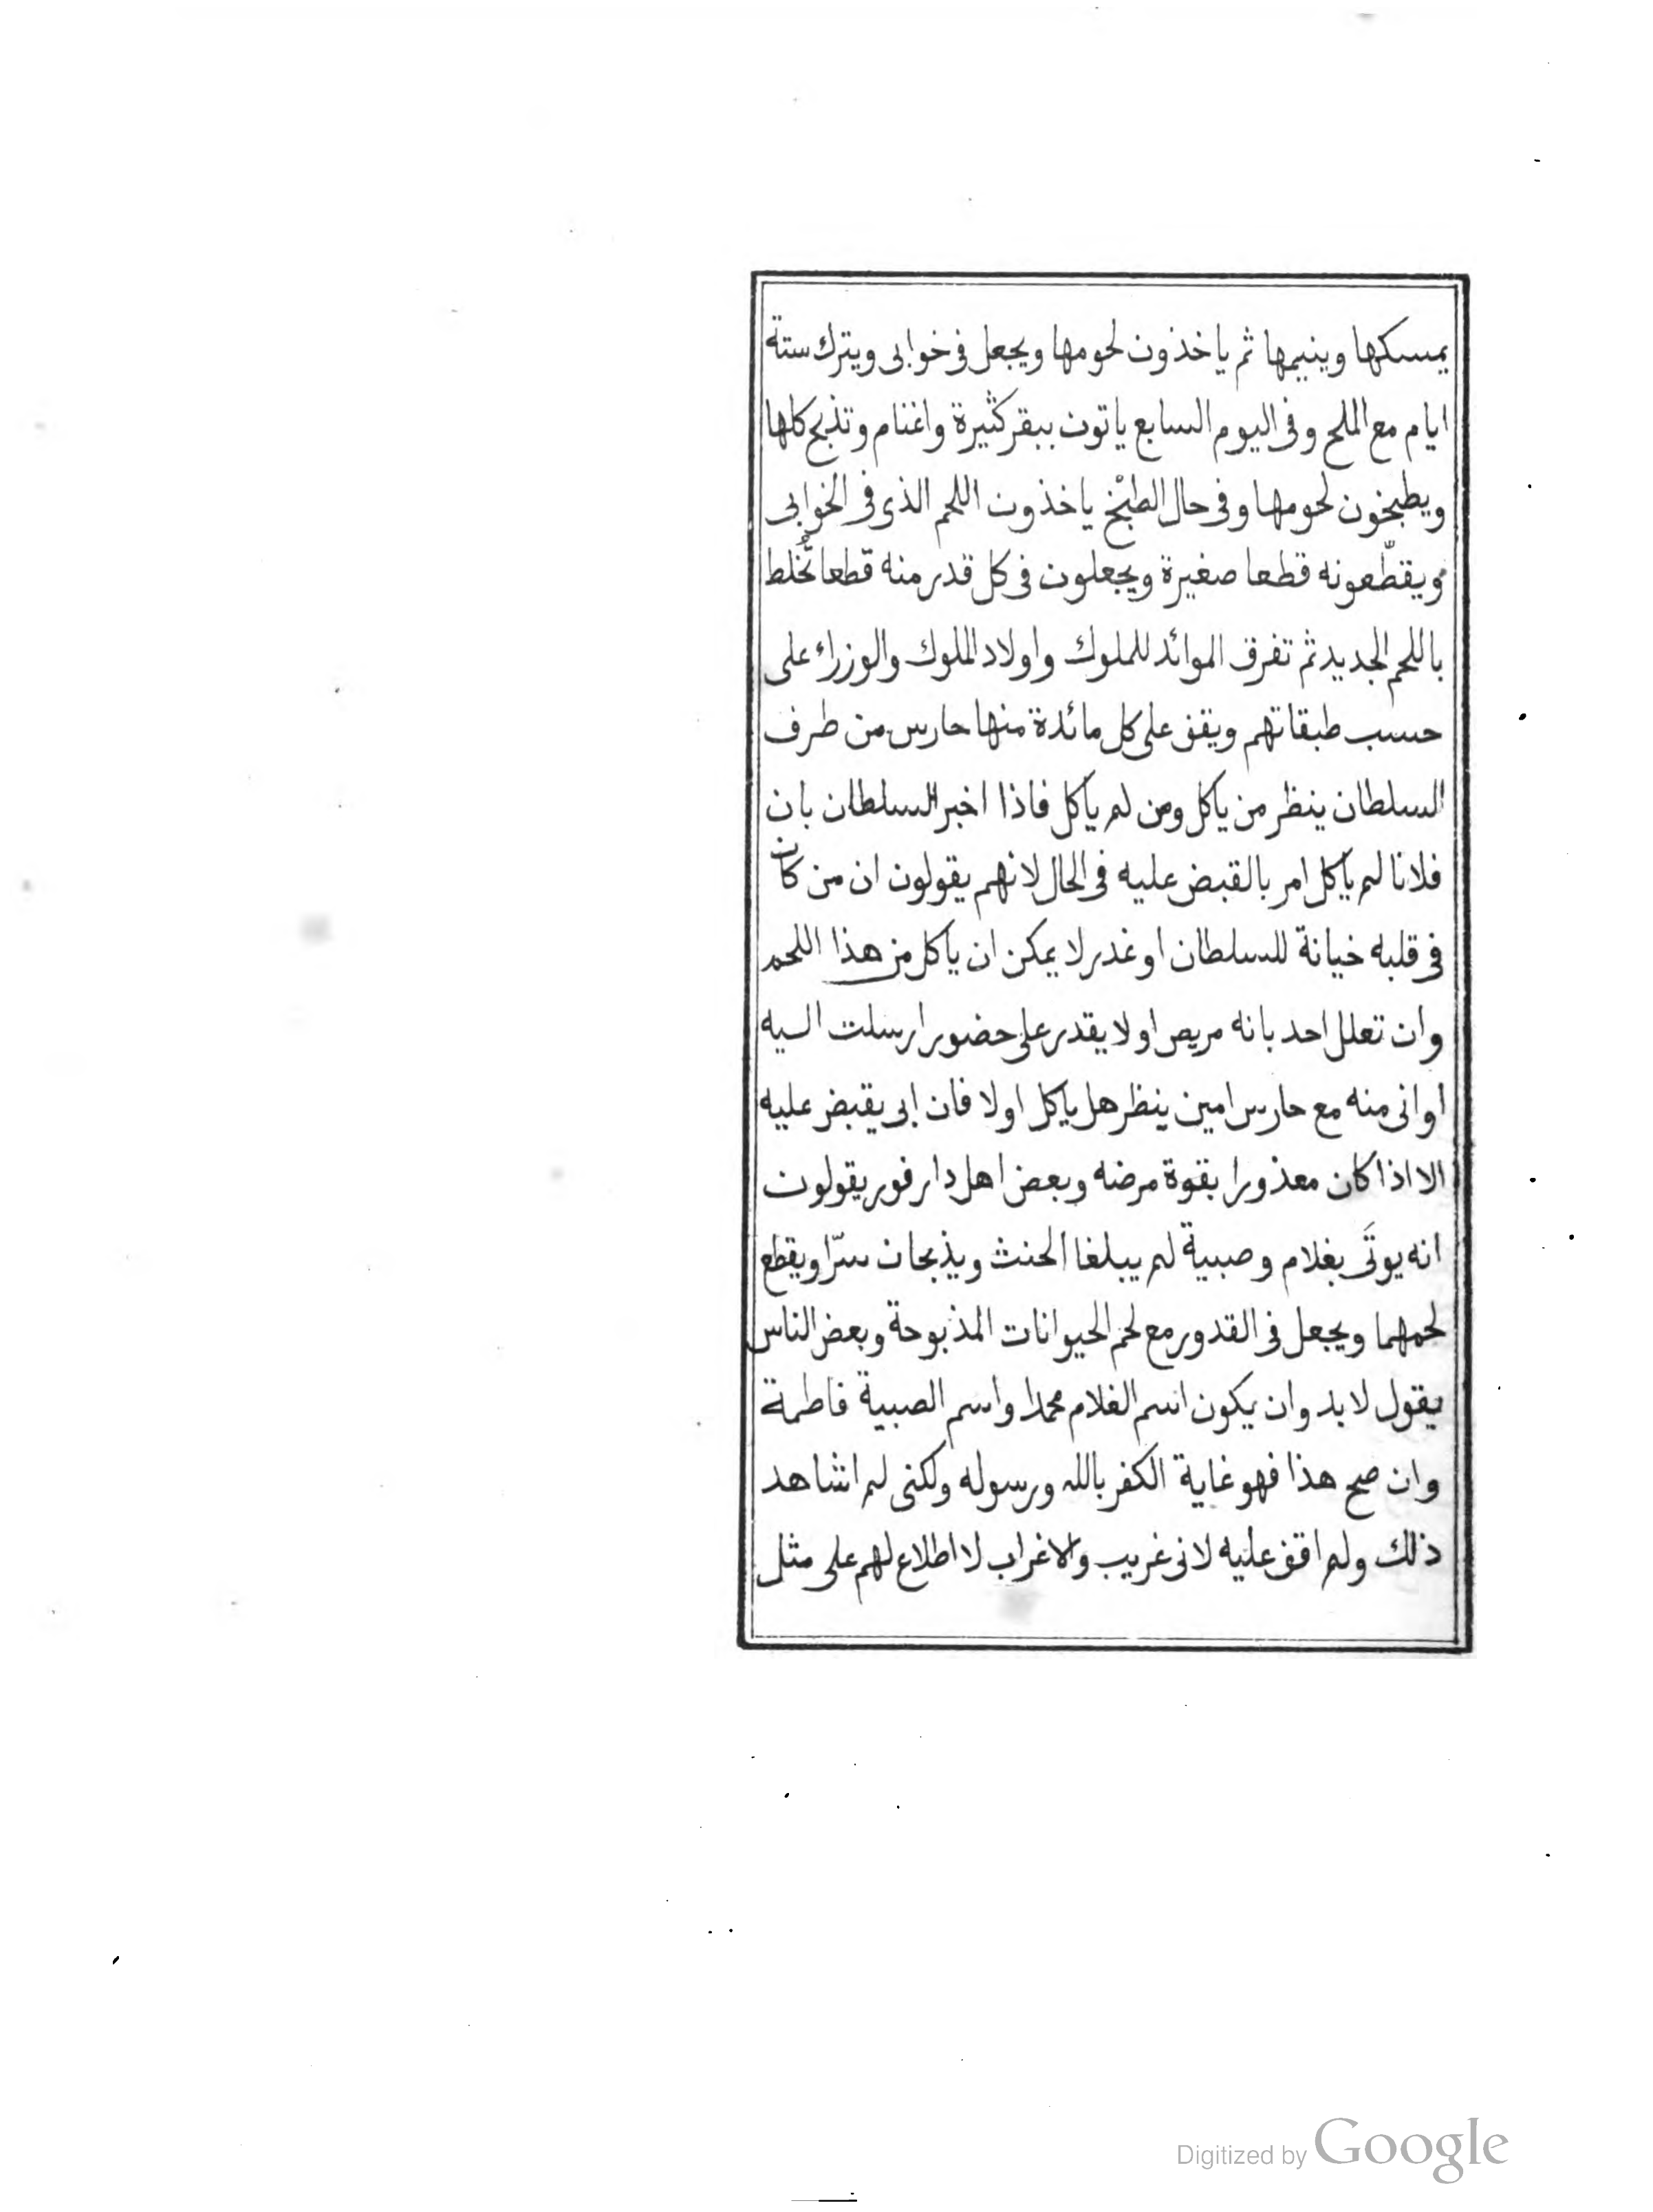 يمسكها وينيمها ثم ياخذون لحومها ويجعل فى خوابى ويترك ستة
ايام مع الملح وفى اليوم السابع ياتون ببقر كثيرة واغنام وتذبح كلها
ويطبخون لحومها وفى حال الطبْخ ياخذون اللحم الذى فى الخوابى
ويقطّعونه قطعا صغيرة ويجعلون فى كل قدر منه قطعا تُخلط
باللحم الجديد ثم تفرق الموائد للملوك واولاد الملوك والوزراء على
حسب طبقاتهم ويقف على كل مائدة منها حارس من طرف
السلطان ينظر من ياكل ومن لم ياكل فاذا اخبر السلطان بان
فلانا لم ياكل امر بالقبض عليه فى الحال لانهم يقولون ان من كان
فى قلبه خيانة للسلطان او غدر لا يمكن ان ياكل من هذا اللحم
وان تعلل احد بانه مريض او لا يقدر على حضور ارسلت اليه
اوانى منه مع حارس امين ينظر هل ياكل اولا فان ابى يقبض عليه
الا اذا كان معذورا بقوة مرضه وبعض اهل دارفور يقولون
انه يوتَى بغلام وصبية لم يبلغا الحنث ويذبحان سرّا ويقطع
لحمهما ويجعل فى القدور مع لحم الحيوانات المذبوحة وبعض الناس
يقول لا بد وان يكون اسم الغلام محمدا واسم الصبية فاطمة
وان صح هذا فهو غاية الكفر بالله ورسوله ولكنى لم اشاهد
ذلك ولم اقف عليه لانى غريب والاغراب لا اطلاع لهم على مثل
Digitized by Google